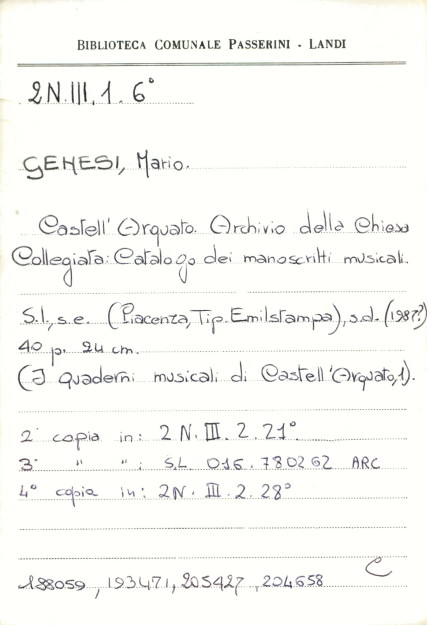 BIBLIOTECA COMUNALE PASSERINI - LANDI
2N.III.1.6°
GENESI, Mario.
Castell'Arquato. Archivio della Chiesa
Collegiata: Catalogo dei manoscritti musicali.
S.l., s.e. (Piacenza, Tip. Emilstampa), s.d. (198??)
40 p. 24 cm.
(I quaderni musicali di Castell'Arquato, 1).
2° copia in: 2 N. III. 2. 21°
3° " " : S.L. 016. 780262 ARC
4° copia in: 2N. III. 2. 28°
C
188059, 193471, 205427, 204658